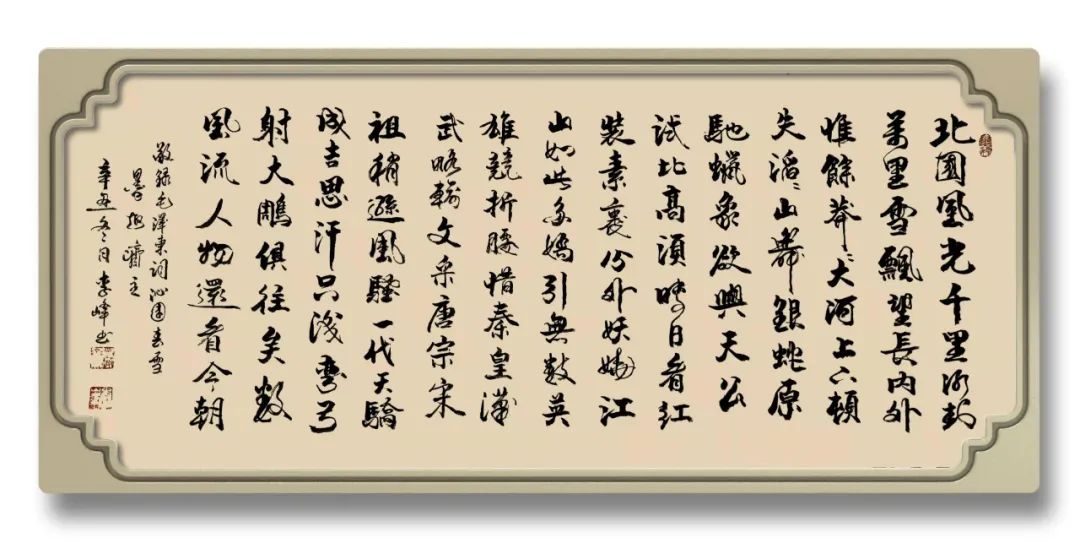 北國風光千里冰封
萬里雪飄望長内外
惟餘莽〻大河上下頓
失滔〻山舞銀蛇原
馳蠟象欲與天公
試比高須晴日看红
裝素裹分外妖嬈江
山如此多嬌引無數英
雄競折腰惜秦皇漢
武略輸文采唐宗宋
祖稍遜風騷一代天驕
成吉思汗只識彎弓
射大雕俱往矣數
風流人物還看今朝
敬録毛澤東詞沁園春雪
墨 齋主
辛丑冬日李峰书